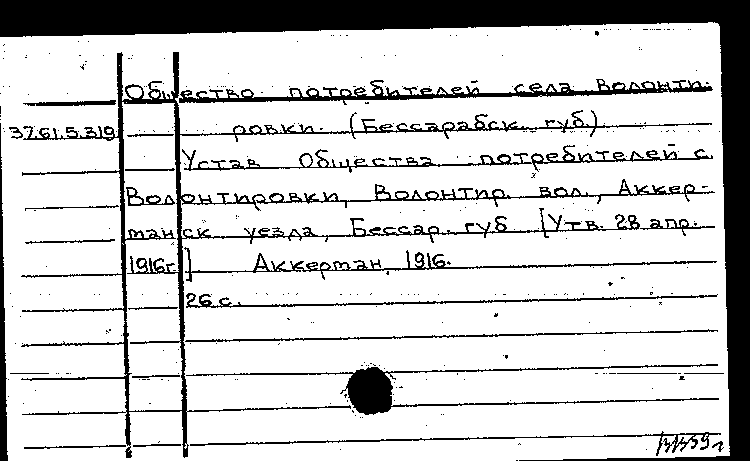 Общество потребителей села Волонти-
37.61.5.319 ровки. (Бессарабск. губ.)
Устав Общества потребителей с.
Волонтировки, Волонтир. вол., Аккер-
манск уезда, Бессар. губ [Утв. 28 апр.
1916г.] Аккерман, 1916.
26 с.